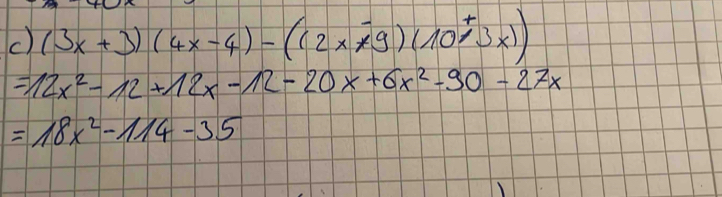 -40x
c) (3x+3)(4x-4)-((2x-9)(10+3x))
=12x²-12+12x-12-20x+6x²-90-27x
=18x²-114-35